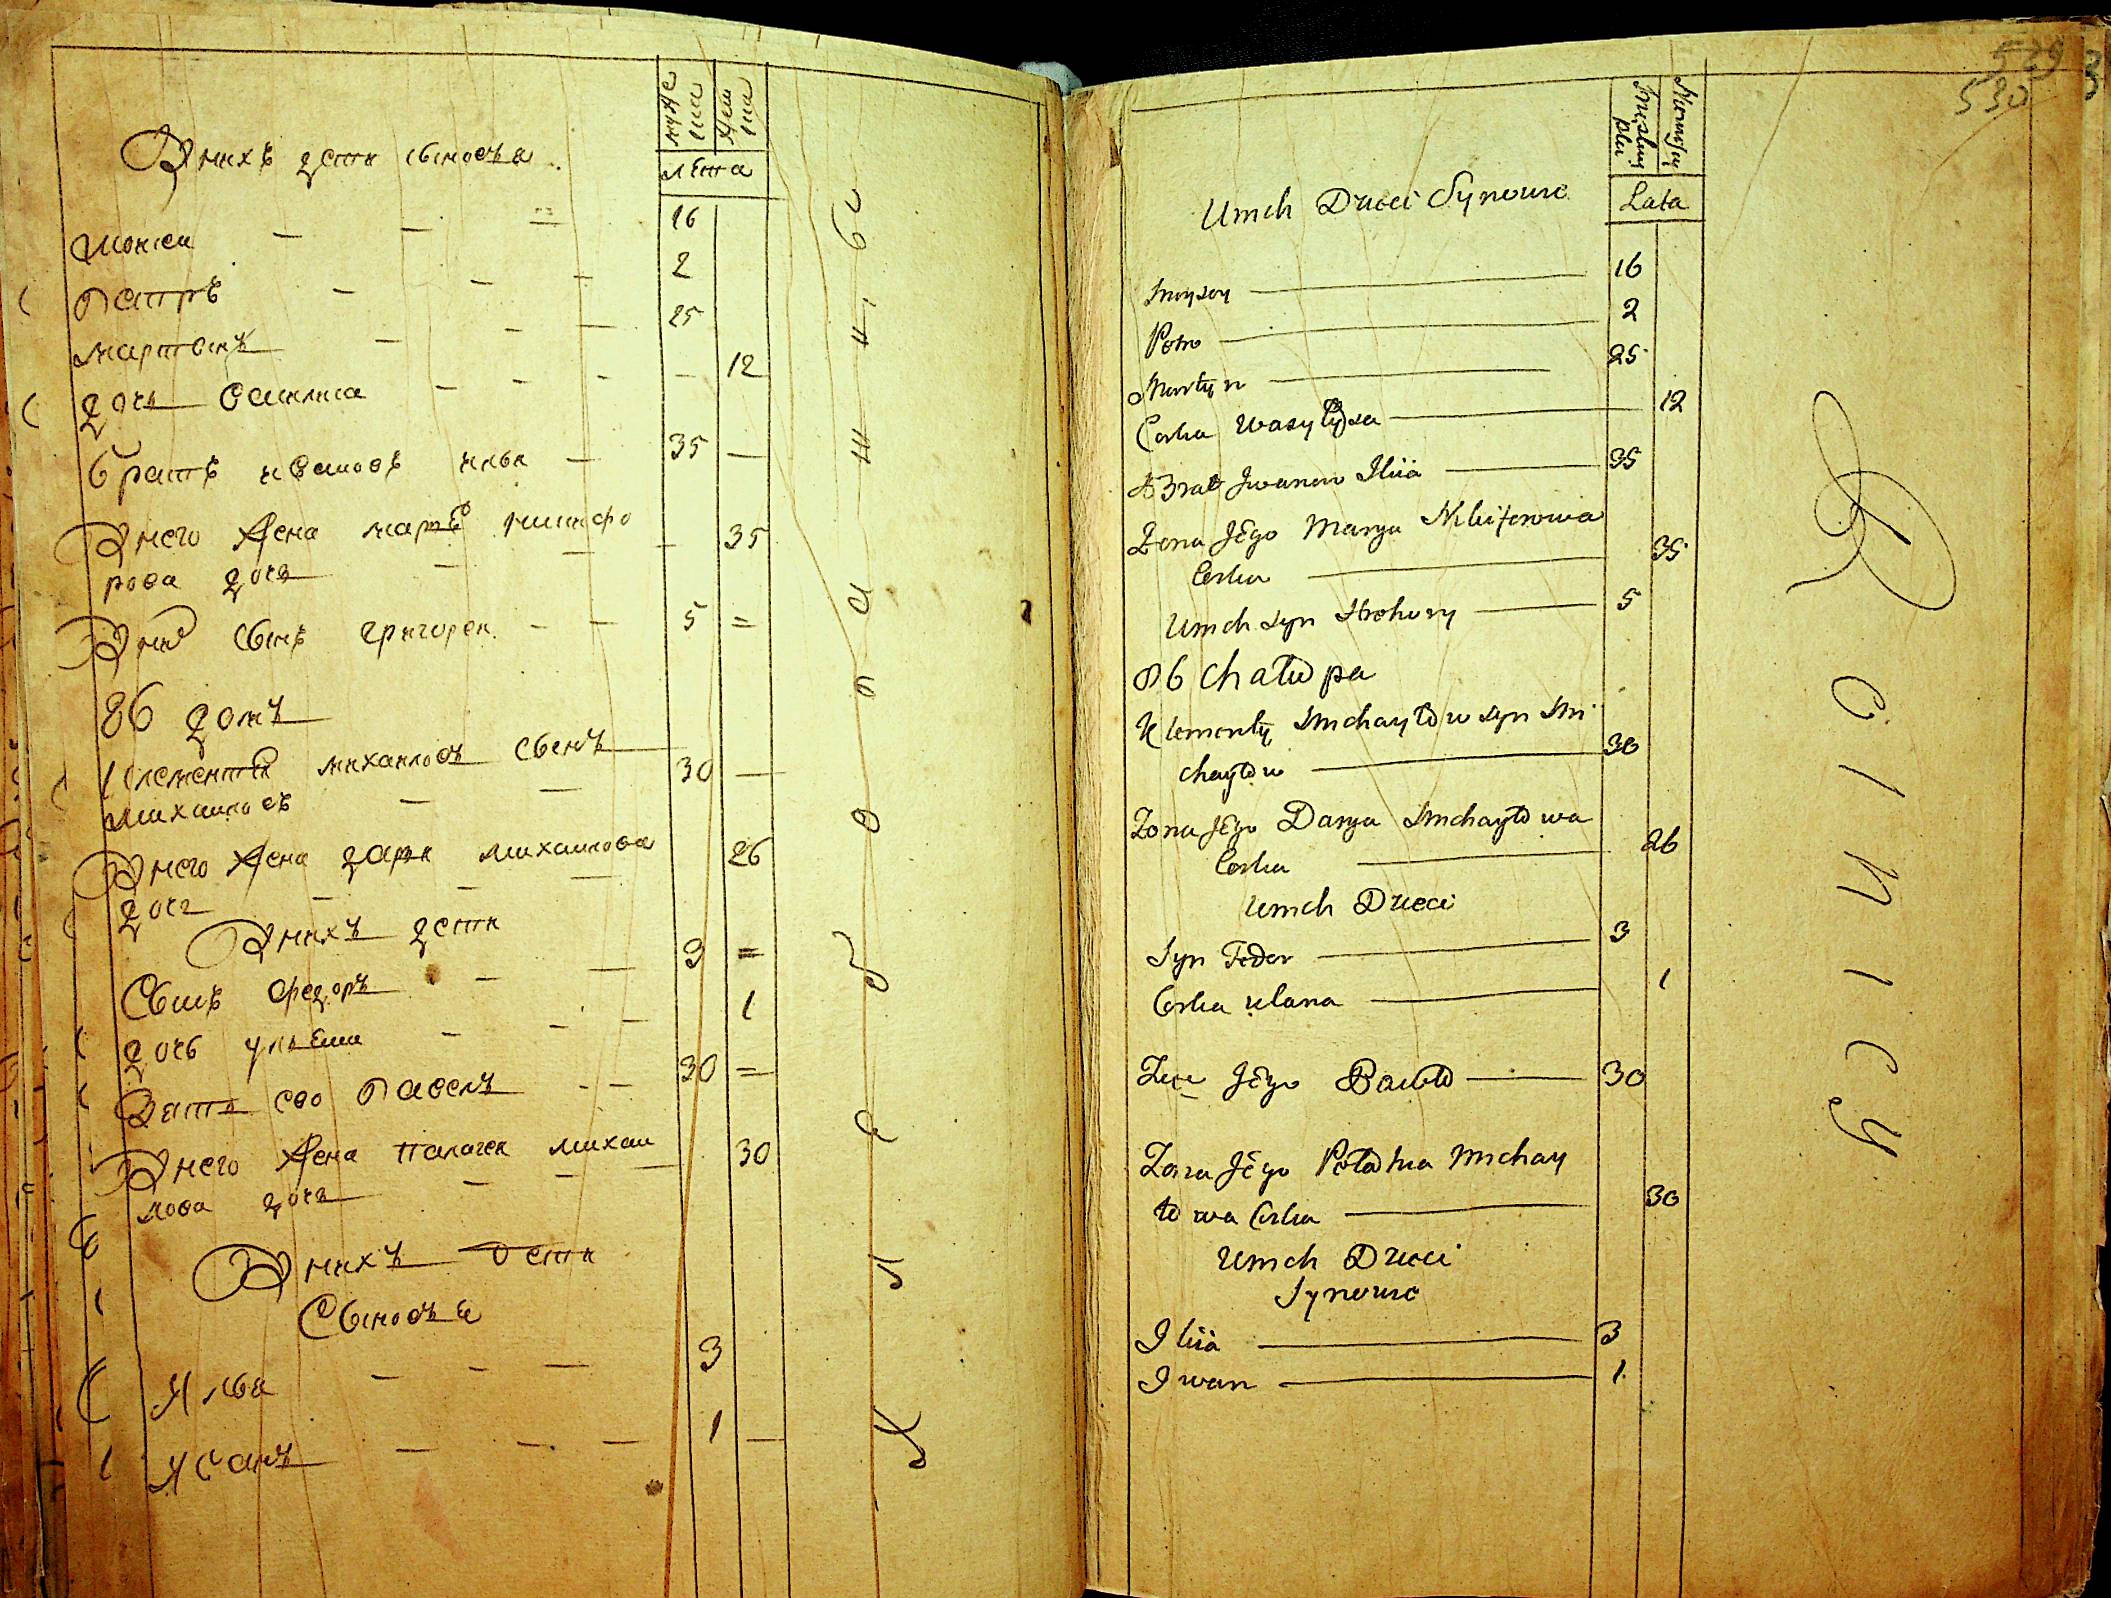 муже
ска
жен
ска
лѣта
Внихъ дети сыновья
Моисеи 16
Петръ 2
Мартынъ 25
дочь Василиса 12
братъ Ивановъ илья 35
Внего жена марья никифо
рова дочь 35
Внихъ сынъ григореи 5
86 домъ
Клементеи михаиловъ сынъ
михаиловъ 30
Внего жена дарья михаилова
дочь 26
Внихъ дети
Сынъ Федоръ 3
дочь ульяна 1
Зять ево Павелъ 30
Внего жена Палагея михаи
лова дочь 30
Внихъ дети
Сыновья
Илья 3
Иванъ 1
529
530
Lata
Umch Dzieci Synowie
Moysey 16
Potro 2
Martyn 25
Corka Wasylysa 12
Brat Jwanow Iliia 35
Zona Jego Marya Nikiforowa
Corka 35
Umch Syn Hrehory 5
86 Chałupa
Klementy Michayłow syn Mi
chayłow 30
Zona Jego Darya Michayłowa
Corka 26
Umch Dzieci
Syn Fedor 3
Corka Ulana 1
Zięć Jego Paweł 30
Zona Jego Połachia Michay
łowa Corka 30
Umch Dzieci
Synowie
Iliia 3
Iwan 1